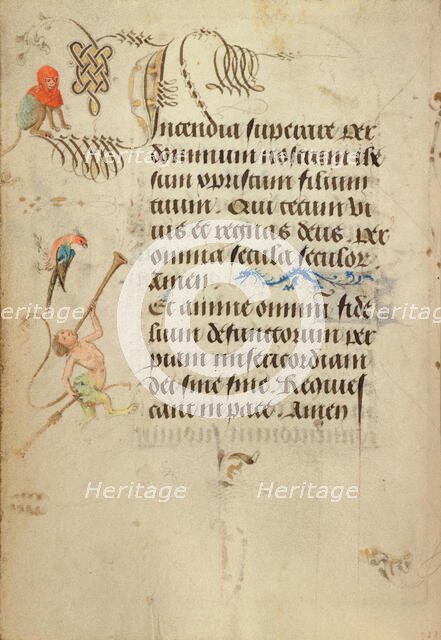 Incendia superare per
dominum nostrum ihe
sum xpristum filium
tuum. Qui tecum vi
vis et regnas deus. per
omnia secula seculor
Amen
Et anime omnium fide
lium defunctorum per
piam misericordiam
dei sine fine Requies
cant in pace. Amen
Heritage Heritage
Heritage Heritage
Heritage Heritage